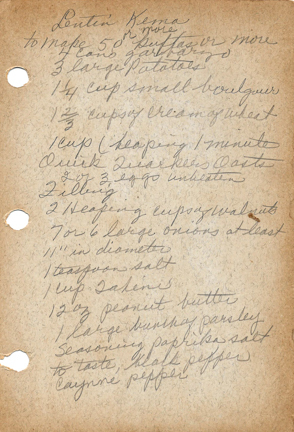 Lentin Kema
or more
to make 50 Kuftas or more
4 cans garbanzo
3 large Potatoes
1 1/4 cup small bourlgour
1 2/3 cups of cream of wheat
1 cup (heaping) 1 minute
Quick Quacker Oasts
2 or 3 eggs unbeaten
Filling
2 Heaping cups of walnuts
7 or 6 large onions at least
11" in diameter
1 teaspoon salt
1 cup Taheni
12 oz peanut butter
1 large bunch of parsley
Seasoning paprika salt
to taste, black pepper
Caynne pepper